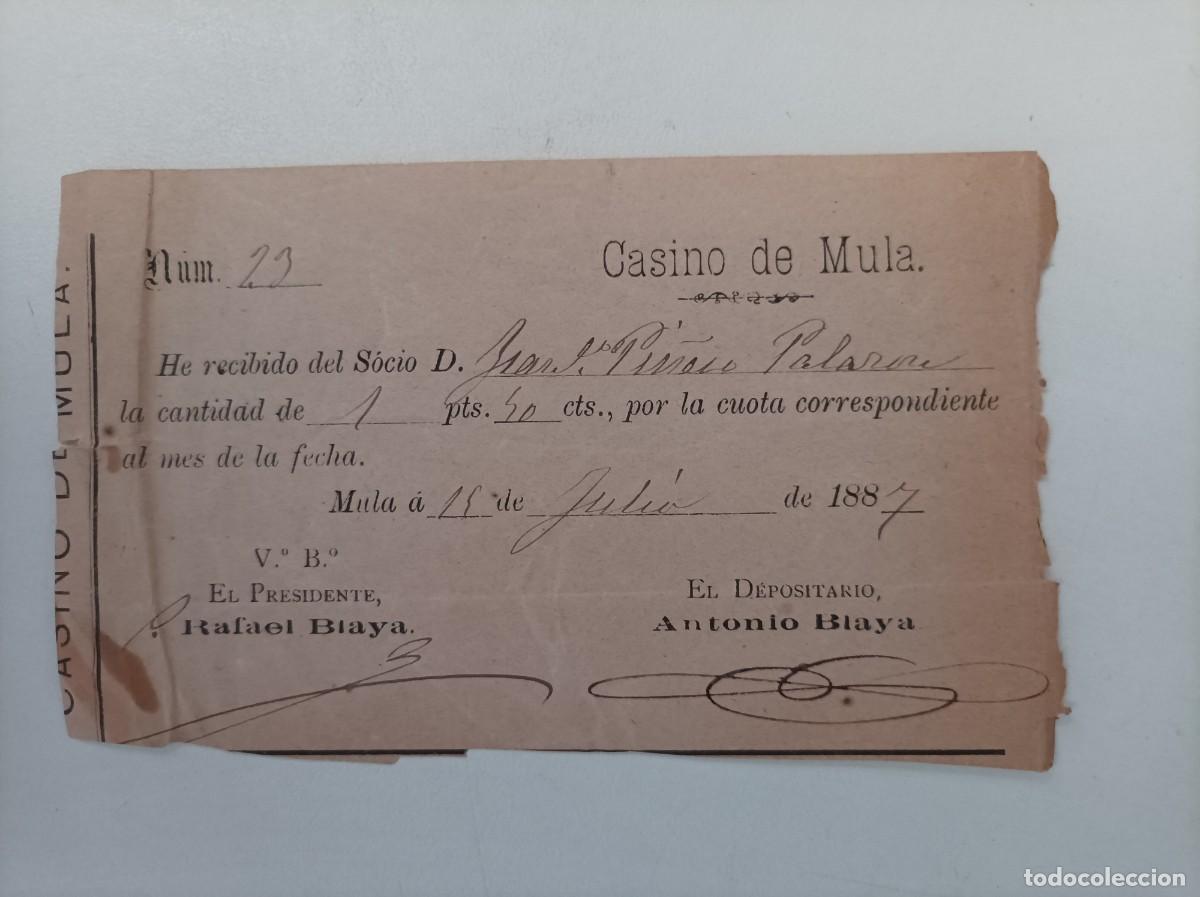 CASINO DE MULA.
Núm. 23
Casino de Mula.
He recibido del Sócio D. Piñero
la cantidad de 1 pts. 50 cts., por la cuota correspondiente
al mes de la fecha.
Mula á 15 de Julio de 1887
V.º B.º
El Presidente,
Rafael Blaya.
El Dépositario,
Antonio Blaya
todocoleccion